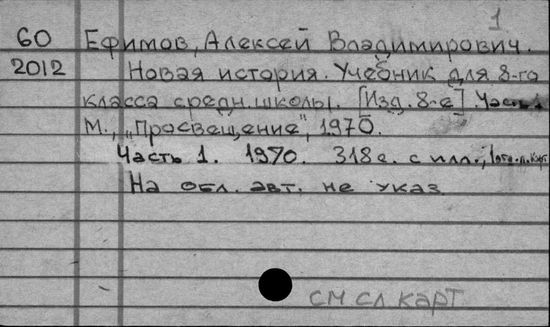 1
60 Ефимов, Алексей Владимирович.
2012 Новая история. Учебник для 8-го
класса средн. школы. [Изд. 8-е] Часть 1.
М., „Просвещение", 1970.
Часть 1. 1970. 318 с. с илл.;
На обл. авт. не указ
см сл карт